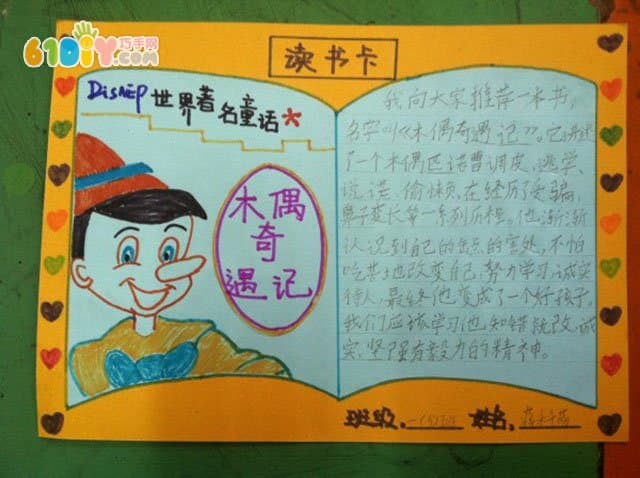 61DIY巧手网
.com
读书卡
Disnep 世界著名童话
木偶
奇
遇记
我向大家推荐一本书,
名字叫《木偶奇遇记》。它讲述
了一个木偶匹诺曹调皮、逃学、
说谎、偷懒,在经历了受骗,
鼻子变长等一系列历程。他渐渐
认识到自己的缺点的害处,不怕
吃苦地改变自己,努力学习,诚实
待人,最终他变成了一个好孩子。
我们应该学习他知错就改、诚
实、坚强有毅力的精神。
班级: 姓名: